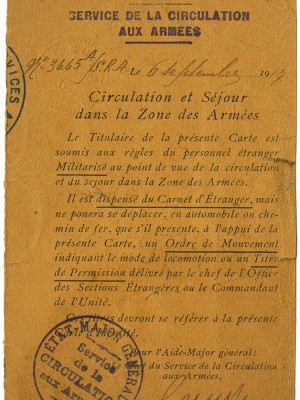 SERVICE DE LA CIRCULATION
AUX ARMÉES
No 3445 S.R.A. Le 6 Septembre 1917
VICES
Circulation et Séjour
dans la Zone des Armées
Le Titulaire de la présente Carte est
soumis aux règles du personnel étranger
Militarisé au point de vue de la circulation
et du sejour dans la Zone des Armées.
Il est dispensé du Carnet d'Étranger, mais
ne pourra se déplacer, en automobile ou che-
min de fer, que s'il présente, à l'appui de la
présente Carte, un Ordre de Mouvement
indiquant le mode de locomotion ou un Titre
de Permission délivré par le chef de l'Office
des Sections Étrangères ou le Commandant
de l'Unité.
Ces titres devront se référer à la présente
Carte d'Identité.
Pour l'Aide-Major général:
Le Chef du Service de la Circulation
aux Armées,
ÉTAT-MAJOR GÉNÉRAL
Service
de la
CIRCULATION
aux ARMÉES